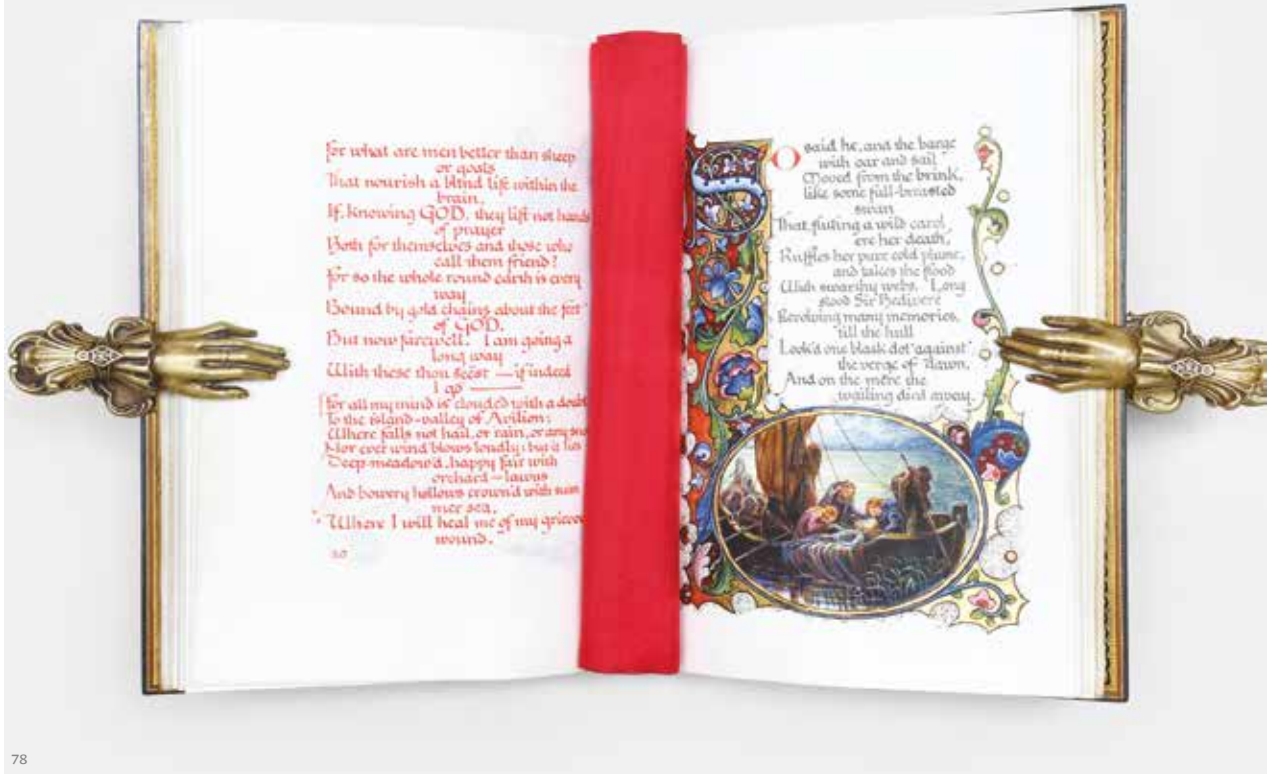 For what are men better than sheep
or goats
That nourish a blind life within the
brain,
If, knowing GOD, they lift not hands
of prayer
Both for themselves and those who
call them friend?
For so the whole round earth is every
way
Bound by gold chains about the feet
of GOD.
But now farewell. I am going a
long way
With these thou seëst — if indeed
I go —
For all my mind is clouded with a doubt
To the island-valley of Avilion;
Where falls not hail, or rain, or any
Nor ever wind blows loudly; but it lies
Deep-meadow'd, happy, fair with
orchard-lawns
And bowery hollows crown'd with sum
mer sea,
Where I will heal me of my grievous
wound.
S
O said he, and the barge
with oar and sail
Moved from the brink,
like some full-breasted
swan
That, fluting a wild carol
ere her death,
Ruffles her pure cold plume,
and takes the flood
With swarthy webs. Long
stood Sir Bedivere
Revolving many memories,
till the hull
Look'd one black dot against
the verge of dawn,
And on the mere the
wailing died away.
78